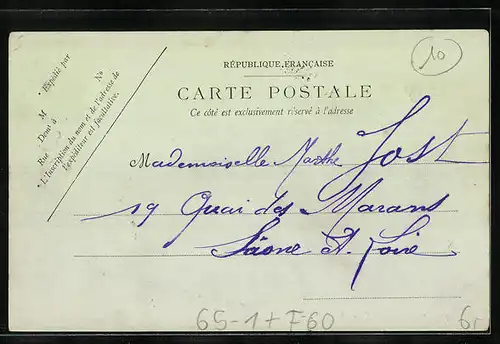 RÉPUBLIQUE FRANÇAISE
CARTE POSTALE
Ce côté est exclusivement réservé à l'adresse
* Expédié par
M
Demt à
Rue
No
* L'Inscription du nom et de l'adresse de
l'expéditeur est facultative.
10
Mademoiselle Marthe Jost
19 Quai des Marans
Saône et Loire
65-1+F60
6,